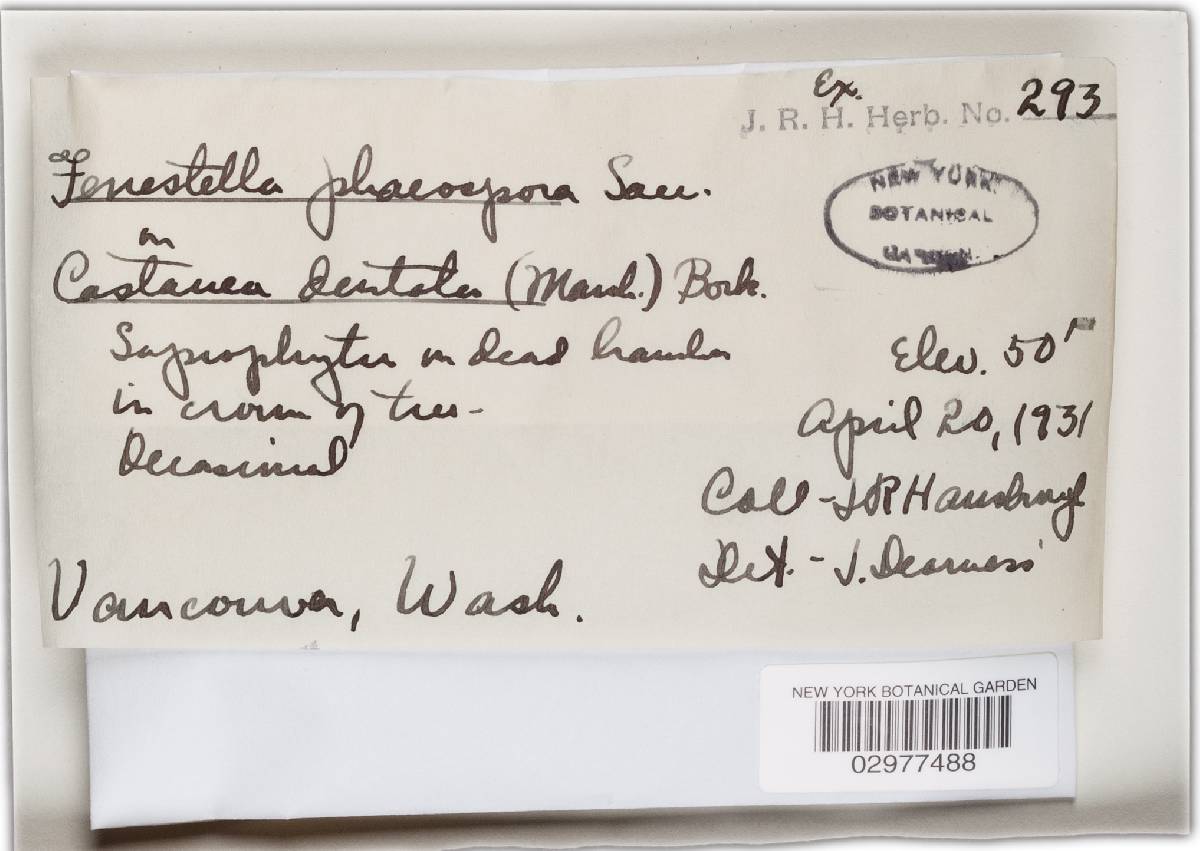 Ex.
J. R. H. Herb. No. 293
Fenestella phaeospora Sacc.
on
Castanea dentata (Marsh.) Bork.
Saprophytic on dead branches
in crown of tree -
Occasional
NEW YORK
BOTANICAL
GARDEN
Elev. 50'
April 20, 1931
Coll - J R Hansbrough
Det. - J. Dearness
Vancouver, Wash.
NEW YORK BOTANICAL GARDEN
02977488